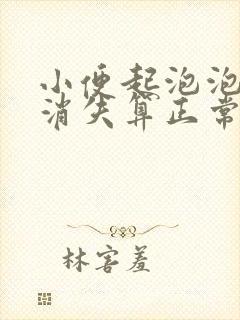 小便起泡泡
消失算正常
林害羞